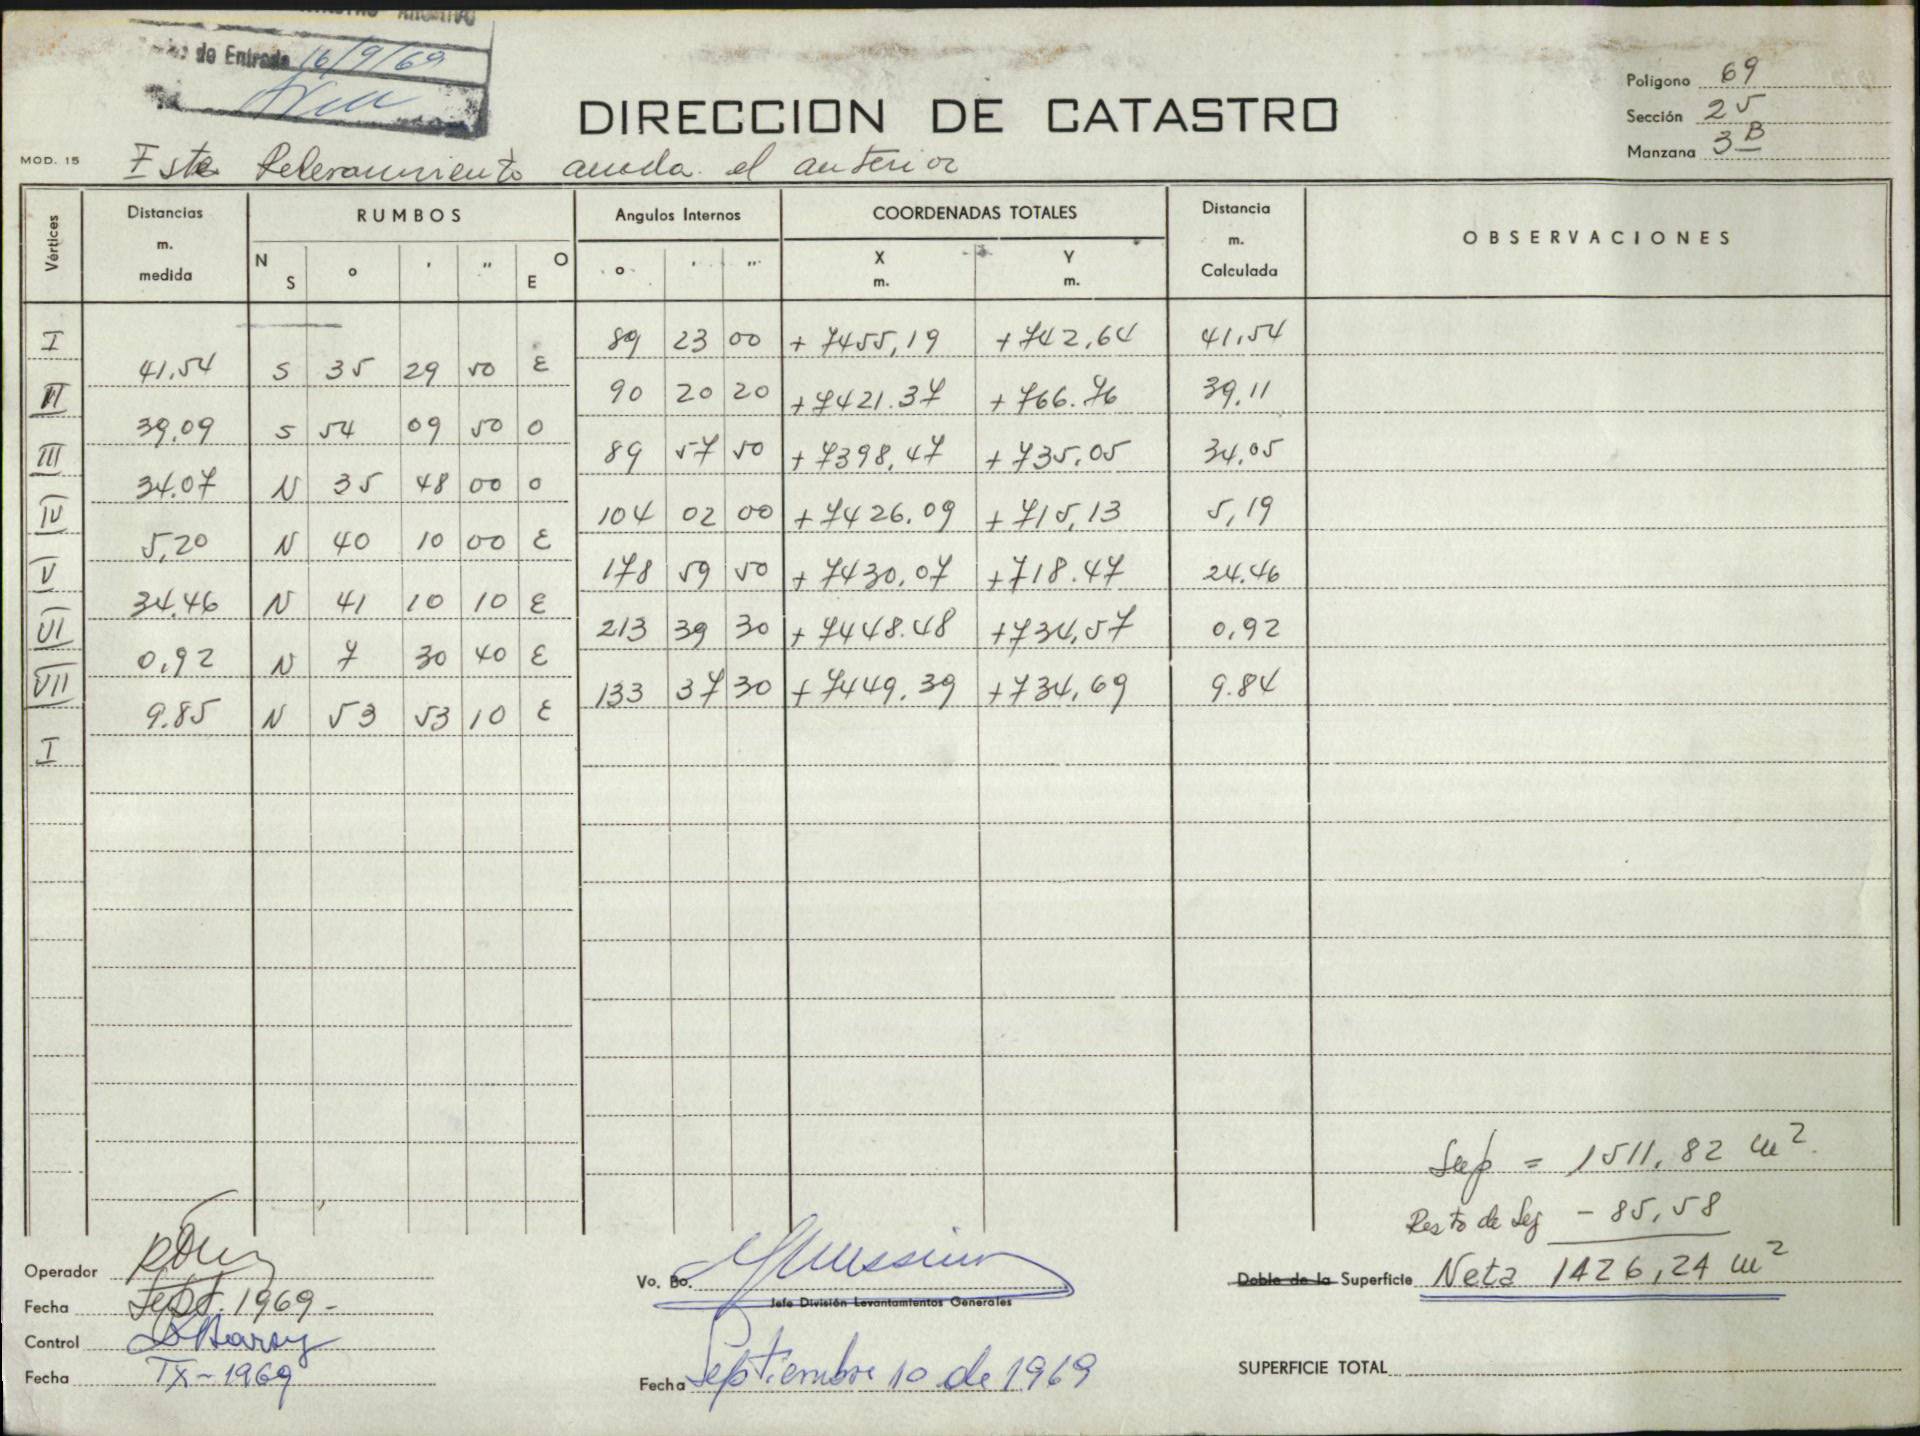 CATASTRO ARCHIVO
de Entrada 16/9/69
DIRECCION DE CATASTRO
Polígono 69
Sección 25
Manzana 3 B
MOD. 15
Este Relevamiento anula el anterior
Vértices
Distancias m. medida
RUMBOS
Angulos Internos
COORDENADAS TOTALES
Distancia m. Calculada
OBSERVACIONES
N S o ' " E O
o ' "
X m.
Y m.
I 89 23 00 +7455,19 +742,64 41,54
41,54 S 35 29 50 E
II 90 20 20 +7421.37 +766.76 39,11
39,09 S 54 09 50 O
III 89 57 50 +7398,47 +735,05 34,05
34.07 N 35 48 00 O
IV 104 02 00 +7426.09 +715,13 5,19
5,20 N 40 10 00 E
V 178 59 50 +7430,07 +718.47 24.46
34.46 N 41 10 10 E
VI 213 39 30 +7448.48 +734,57 0,92
0,92 N 7 30 40 E
VII 133 37 30 +7449,39 +734,69 9.84
9.85 N 53 53 10 E
I
Sup = 1511,82 m²
Resto de Seg - 85,58
Doble de la Superficie Neta 1426,24 m²
Operador
Fecha Sept. 1969 -
Control
Fecha IX-1969
Vo. Bo.
Jefe División Levantamientos Generales
Fecha Septiembre 10 de 1969
SUPERFICIE TOTAL